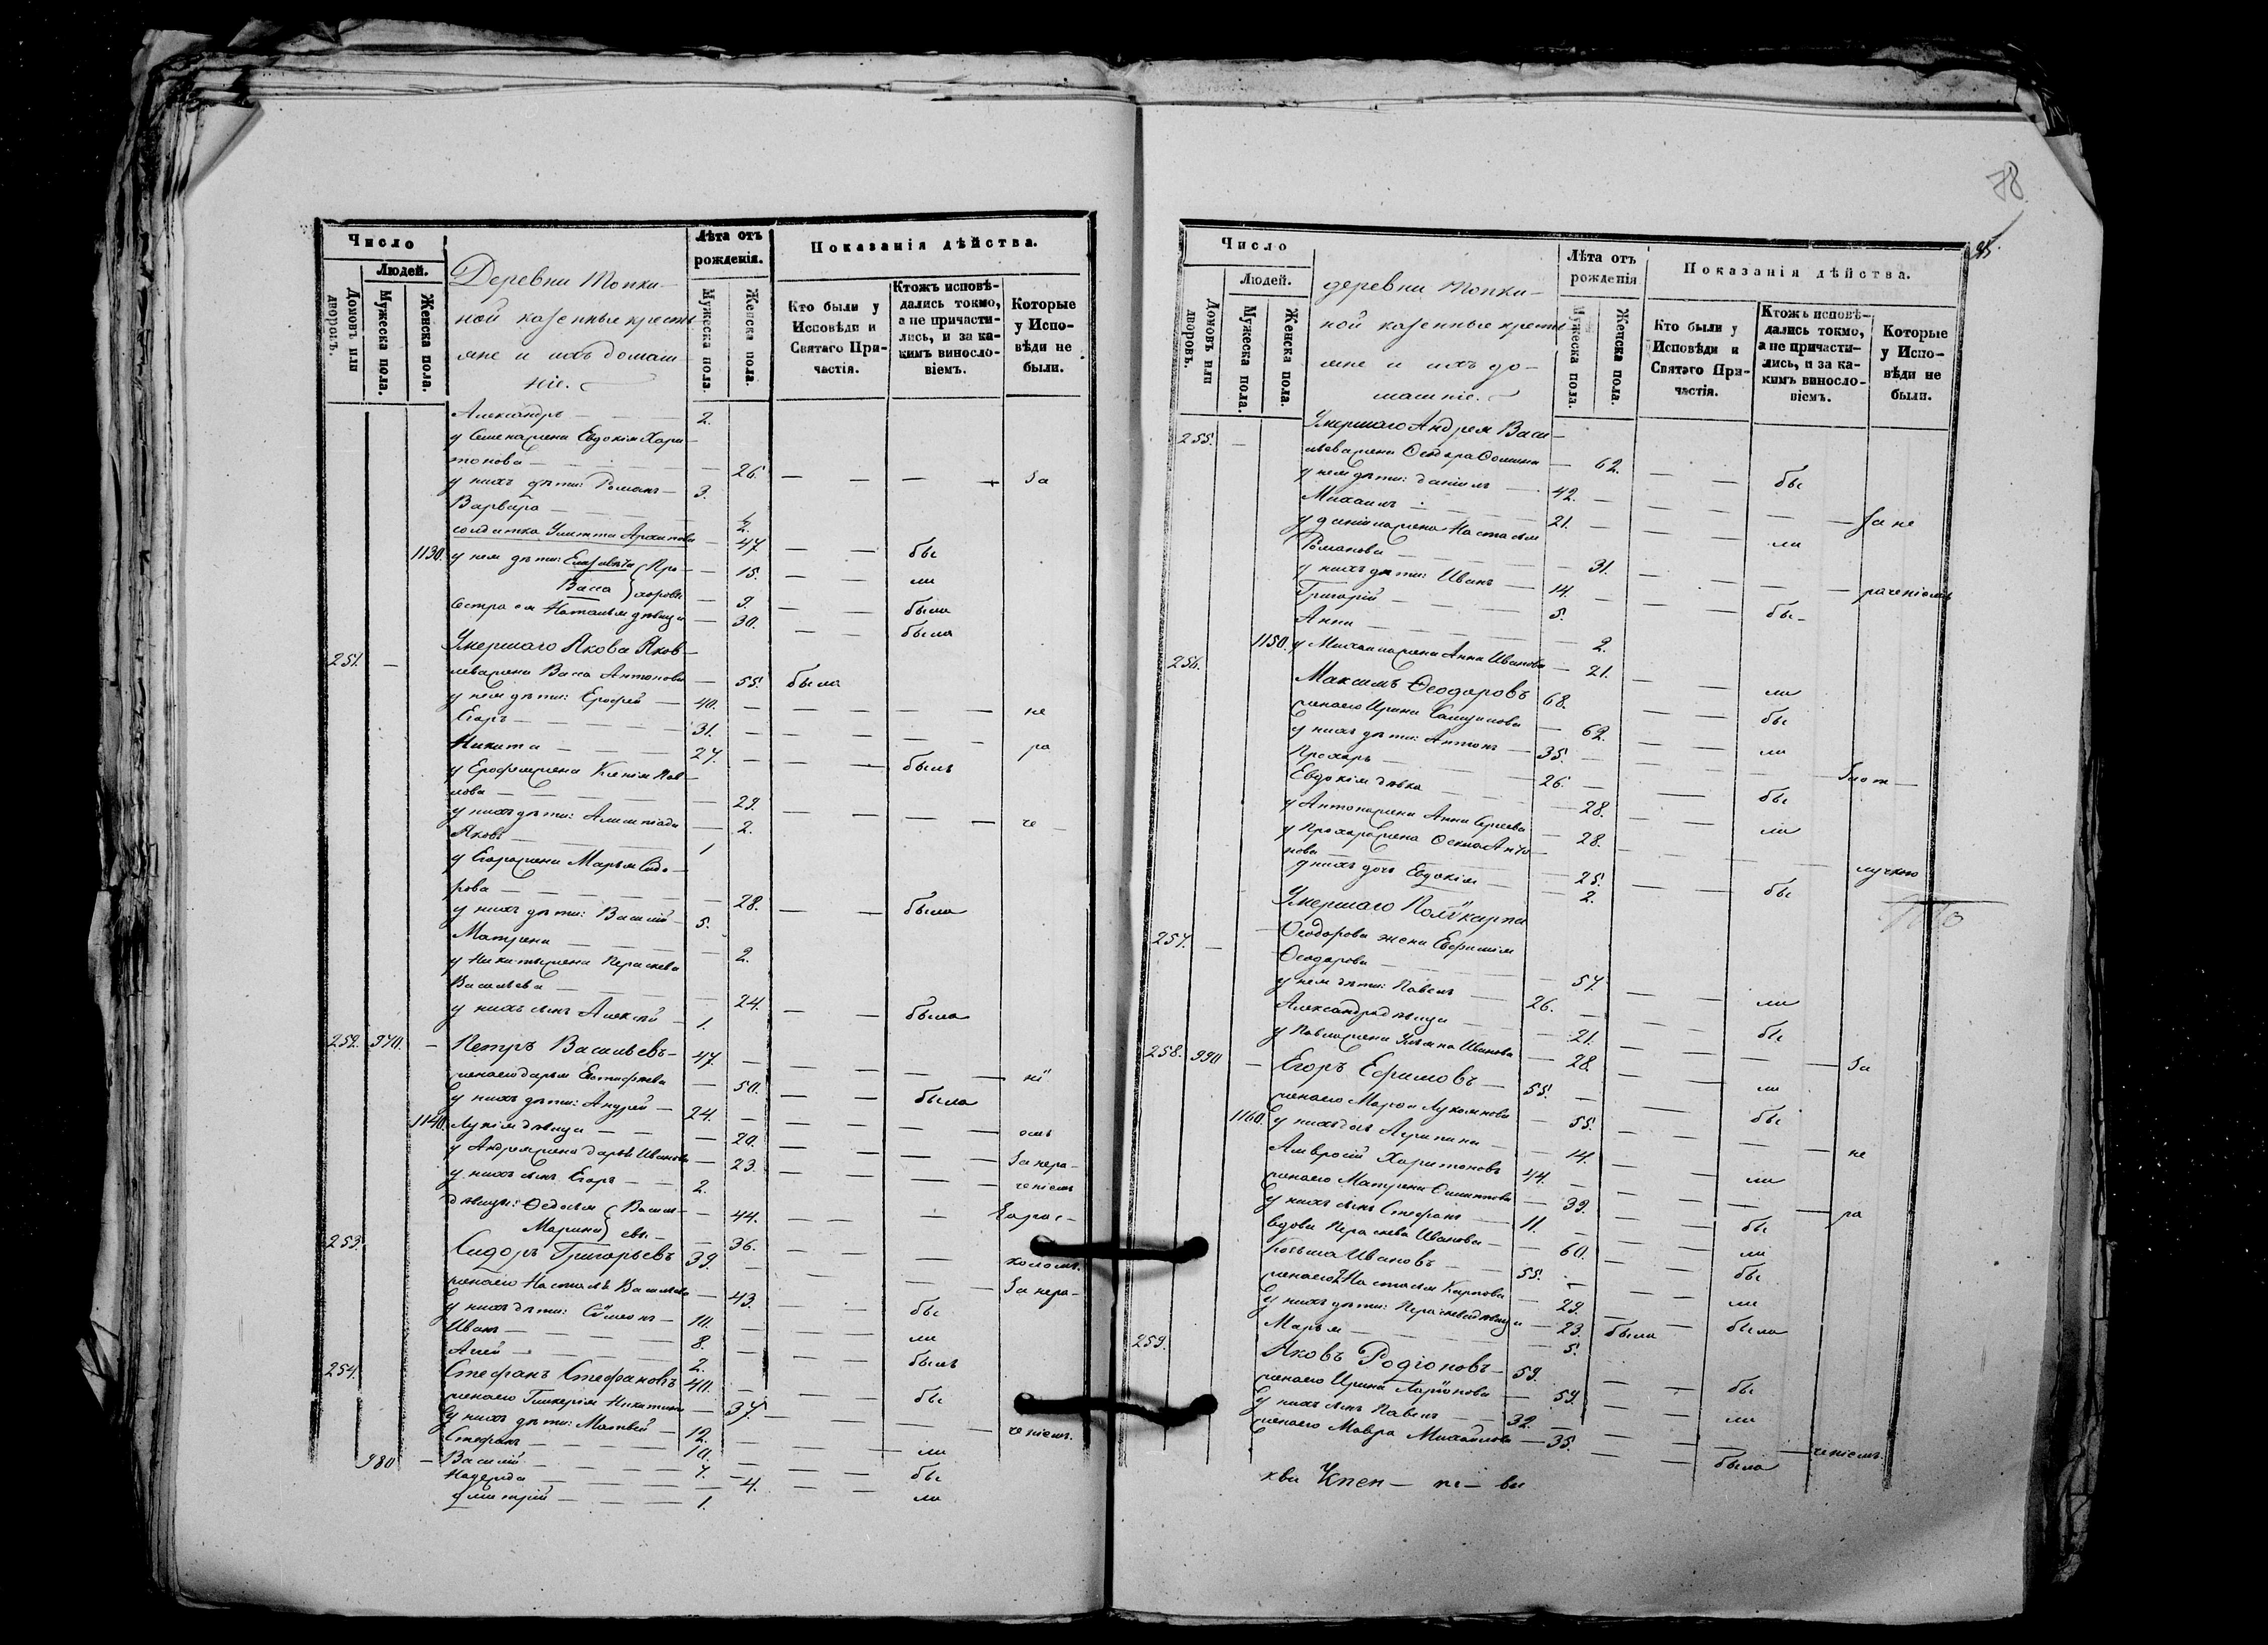 78
Число
Лѣта отъ рожденія.
Показанія дѣйства.
Людей.
Домовъ или дворовъ.
Мужеска пола.
Женска пола.
Деревни Топки-
ной казенные кресть-
яне и ихъ домаш-
ніе.
Мужеска пола.
Женска пола.
Кто были у Исповѣди и Святаго Причастія.
Ктожъ исповѣдались токмо, а не причастились, и за какимъ винословіемъ.
Которые у Исповѣди не были.
Александръ — 2.
жена Евдокія Хари-
тонова — 26. — За
у нихъ дѣти: Романъ — 3.
Варвара — 2.
солдатка Архипова — 47. — бы
1130. у нея дѣти: Елизавета Про- — 15. — ли
Васса хоровы — 9. — была
Сестра ея Наталья дѣвица — 30. — была
Умершаго Якова Яков-
251. — лева жена Васса Антонова — 55. была
у нея дѣти: Ерофей — 40. — не
Егоръ — 31. — ра
Никита — 27. — былъ
у Ерофея жена Ксенія Пав-
лова — 29. — че
у нихъ дѣти: — 2.
Яковъ — 1
у Егора жена Марья Сидо-
рова — 28. — была
у нихъ дѣти: Василій — 5.
Матрена — 2.
у Никиты жена Параскева
Васильева — 24. — была
у нихъ сынъ Алексѣй — 1.
252. 970. — Петръ Васильевъ — 47. — ні
жена его Дарья Евстифѣева — 50. — была
у нихъ дѣти: Андрей — 24. — емъ
1140. Лукія дѣвица — 20. — За нера-
у Андрея жена Дарья Иванова — 23. — ченіемъ
у нихъ сынъ Егоръ — 2.
дѣвицы: Ѳедосья Василь- — 44. —
Марина евы — 36. —
253. Сидоръ Григорьевъ 39. — За нера-
жена его Настасья Васильева — 43. — бы
у нихъ дѣти: Сѷмеонъ — 10. — ли
Иванъ — 8. — былъ
2.
254. Стефанъ Стефановъ 40. — бы
жена его Гликерія Никитина — 37. — ченіемъ.
у нихъ дѣти: Матвѣй — 12. — ли
Стефанъ — 10. — бы
980 — Василій — 7. — ли
Надежда — 4.
Дмитрій — 1.
Число
Лѣта отъ рожденія
Показанія дѣйства.
Людей.
Домовъ или дворовъ.
Мужеска пола.
Женска пола.
деревни Топки-
ной казенные кресть-
яне и ихъ до-
машніе.
Мужеска пола.
Женска пола.
Кто были у Исповѣди и Святаго Причастія.
Ктожъ исповѣдались токмо, а не причастились, и за какимъ винословіемъ.
Которые у Исповѣди не были.
255. — Умершаго Андрея Васи-
льева жена Ѳеодора Ѳомина — 62. — бы
у нея дѣти: Даніилъ — 42. — За не
Михаилъ — 21. — ли
у Даніила жена Настасья
Романова — 31. — раченіемъ
у нихъ дѣти: Иванъ — 14. — бы
Григорій — 5.
Анна — 2.
1150. у Михаила жена Анна Иванова — 21. — ли
256. Максимъ Ѳеодоровъ 68. — бы
жена его Ирина — 62. — ли
у нихъ дѣти: Антонъ — 35. —
Прохоръ — 26. — бы
Евдокія дѣвка — 28. — ли
у Антона жена Анна Сергеева — 28. — лучкою
у Прохора жена Анто-
нова — 25. — бы
у нихъ дочь Евдокія — 2.
257. — Умершаго Полѷкарпа
Ѳеодорова жена Евфимія
Ѳеодорова — 57. — ли
у нея дѣти: Павелъ — 26. — бы
Александра дѣвица — 21. — За
у Павла жена Ульяна Иванова — 28. — ли
258. 990 — Егоръ Ефимовъ — 55. — бы
жена его Марья — 55. — не
1160. у нихъ дочь Агрипина — 14. — ли
Амвросій Харитоновъ 44. — ра
жена его Матрена — 39. — бы
у нихъ сынъ Стефанъ — 11. — ли
вдова Параскева Иванова — 60. — бы
Козьма Ивановъ — 55. — ли
жена его Настасья Карпова — 29. — была
у нихъ дѣти: Параскева дѣвица — 23. была
Марья — 5.
259. Яковъ Родіоновъ — 59. — бы
жена его Ирина Ларіонова — 59. — ли
у нихъ сынъ Павелъ — 32. — ченіемъ.
жена его Мавра Михайлова — 35. — была